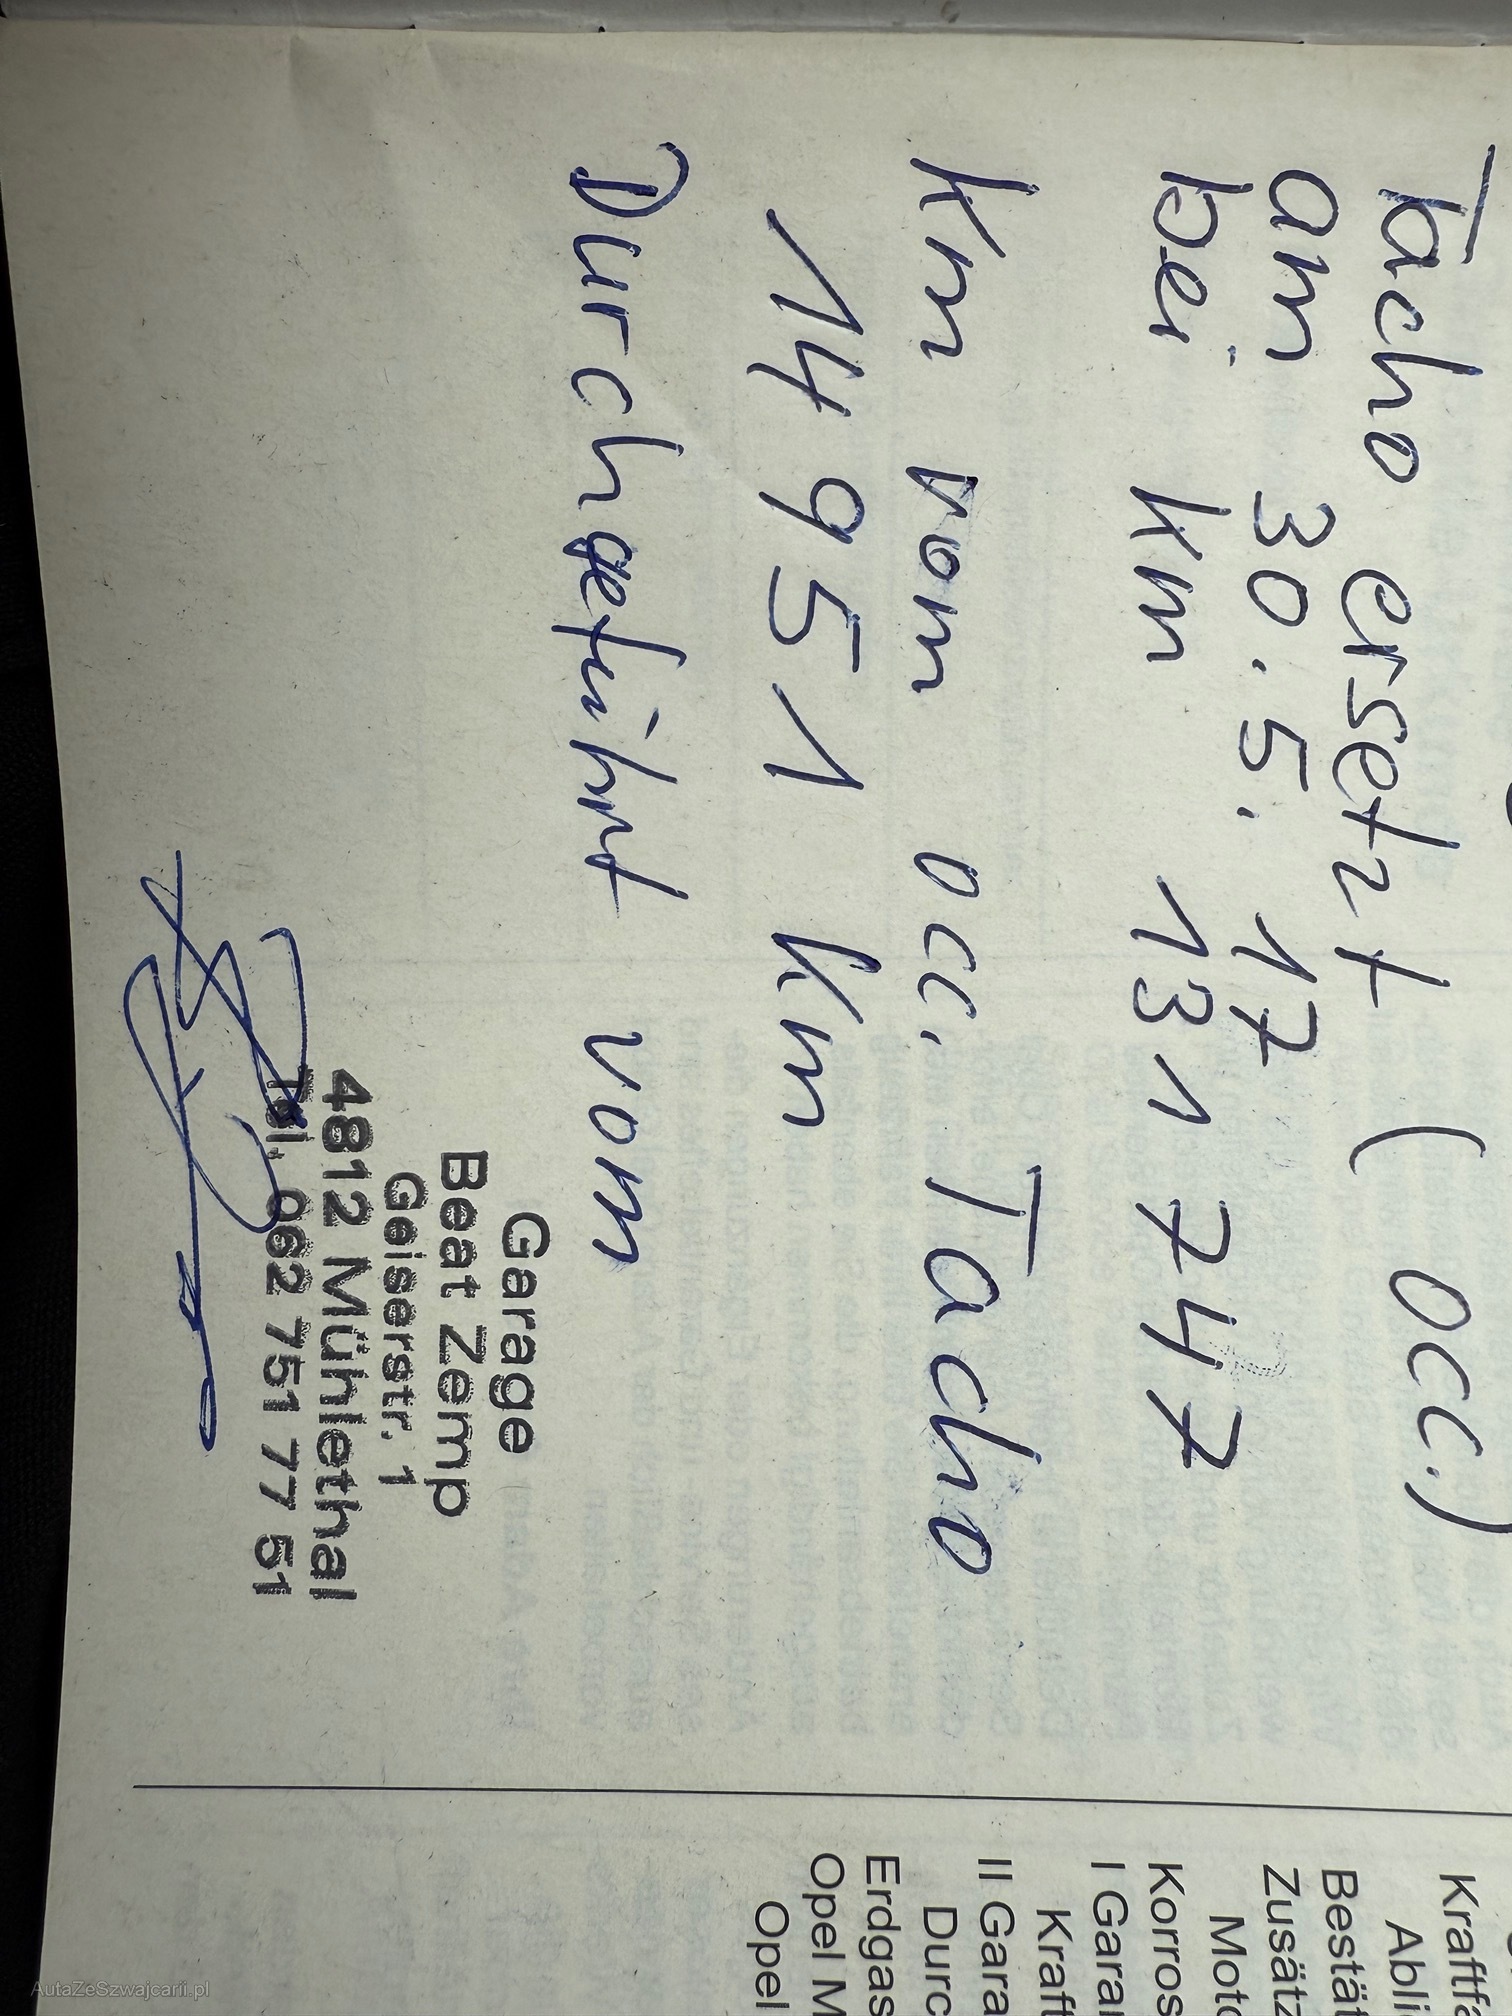 Tacho ersetzt (occ.)
am 30.5.17
bei km 131 747
Km vom occ. Tacho
14951 km
Durchgeführt vom
Garage
Beat Zemp
Geiserstr. 1
4812 Mühlethal
Tel. 062 751 77 51
Kraftfa
Abli
Bestät
Zusätz
Moto
Korros
I Garan
Kraft
II Gara
Durc
Erdgas
Opel M
Opel
AutaZeSzwajcarii.pl